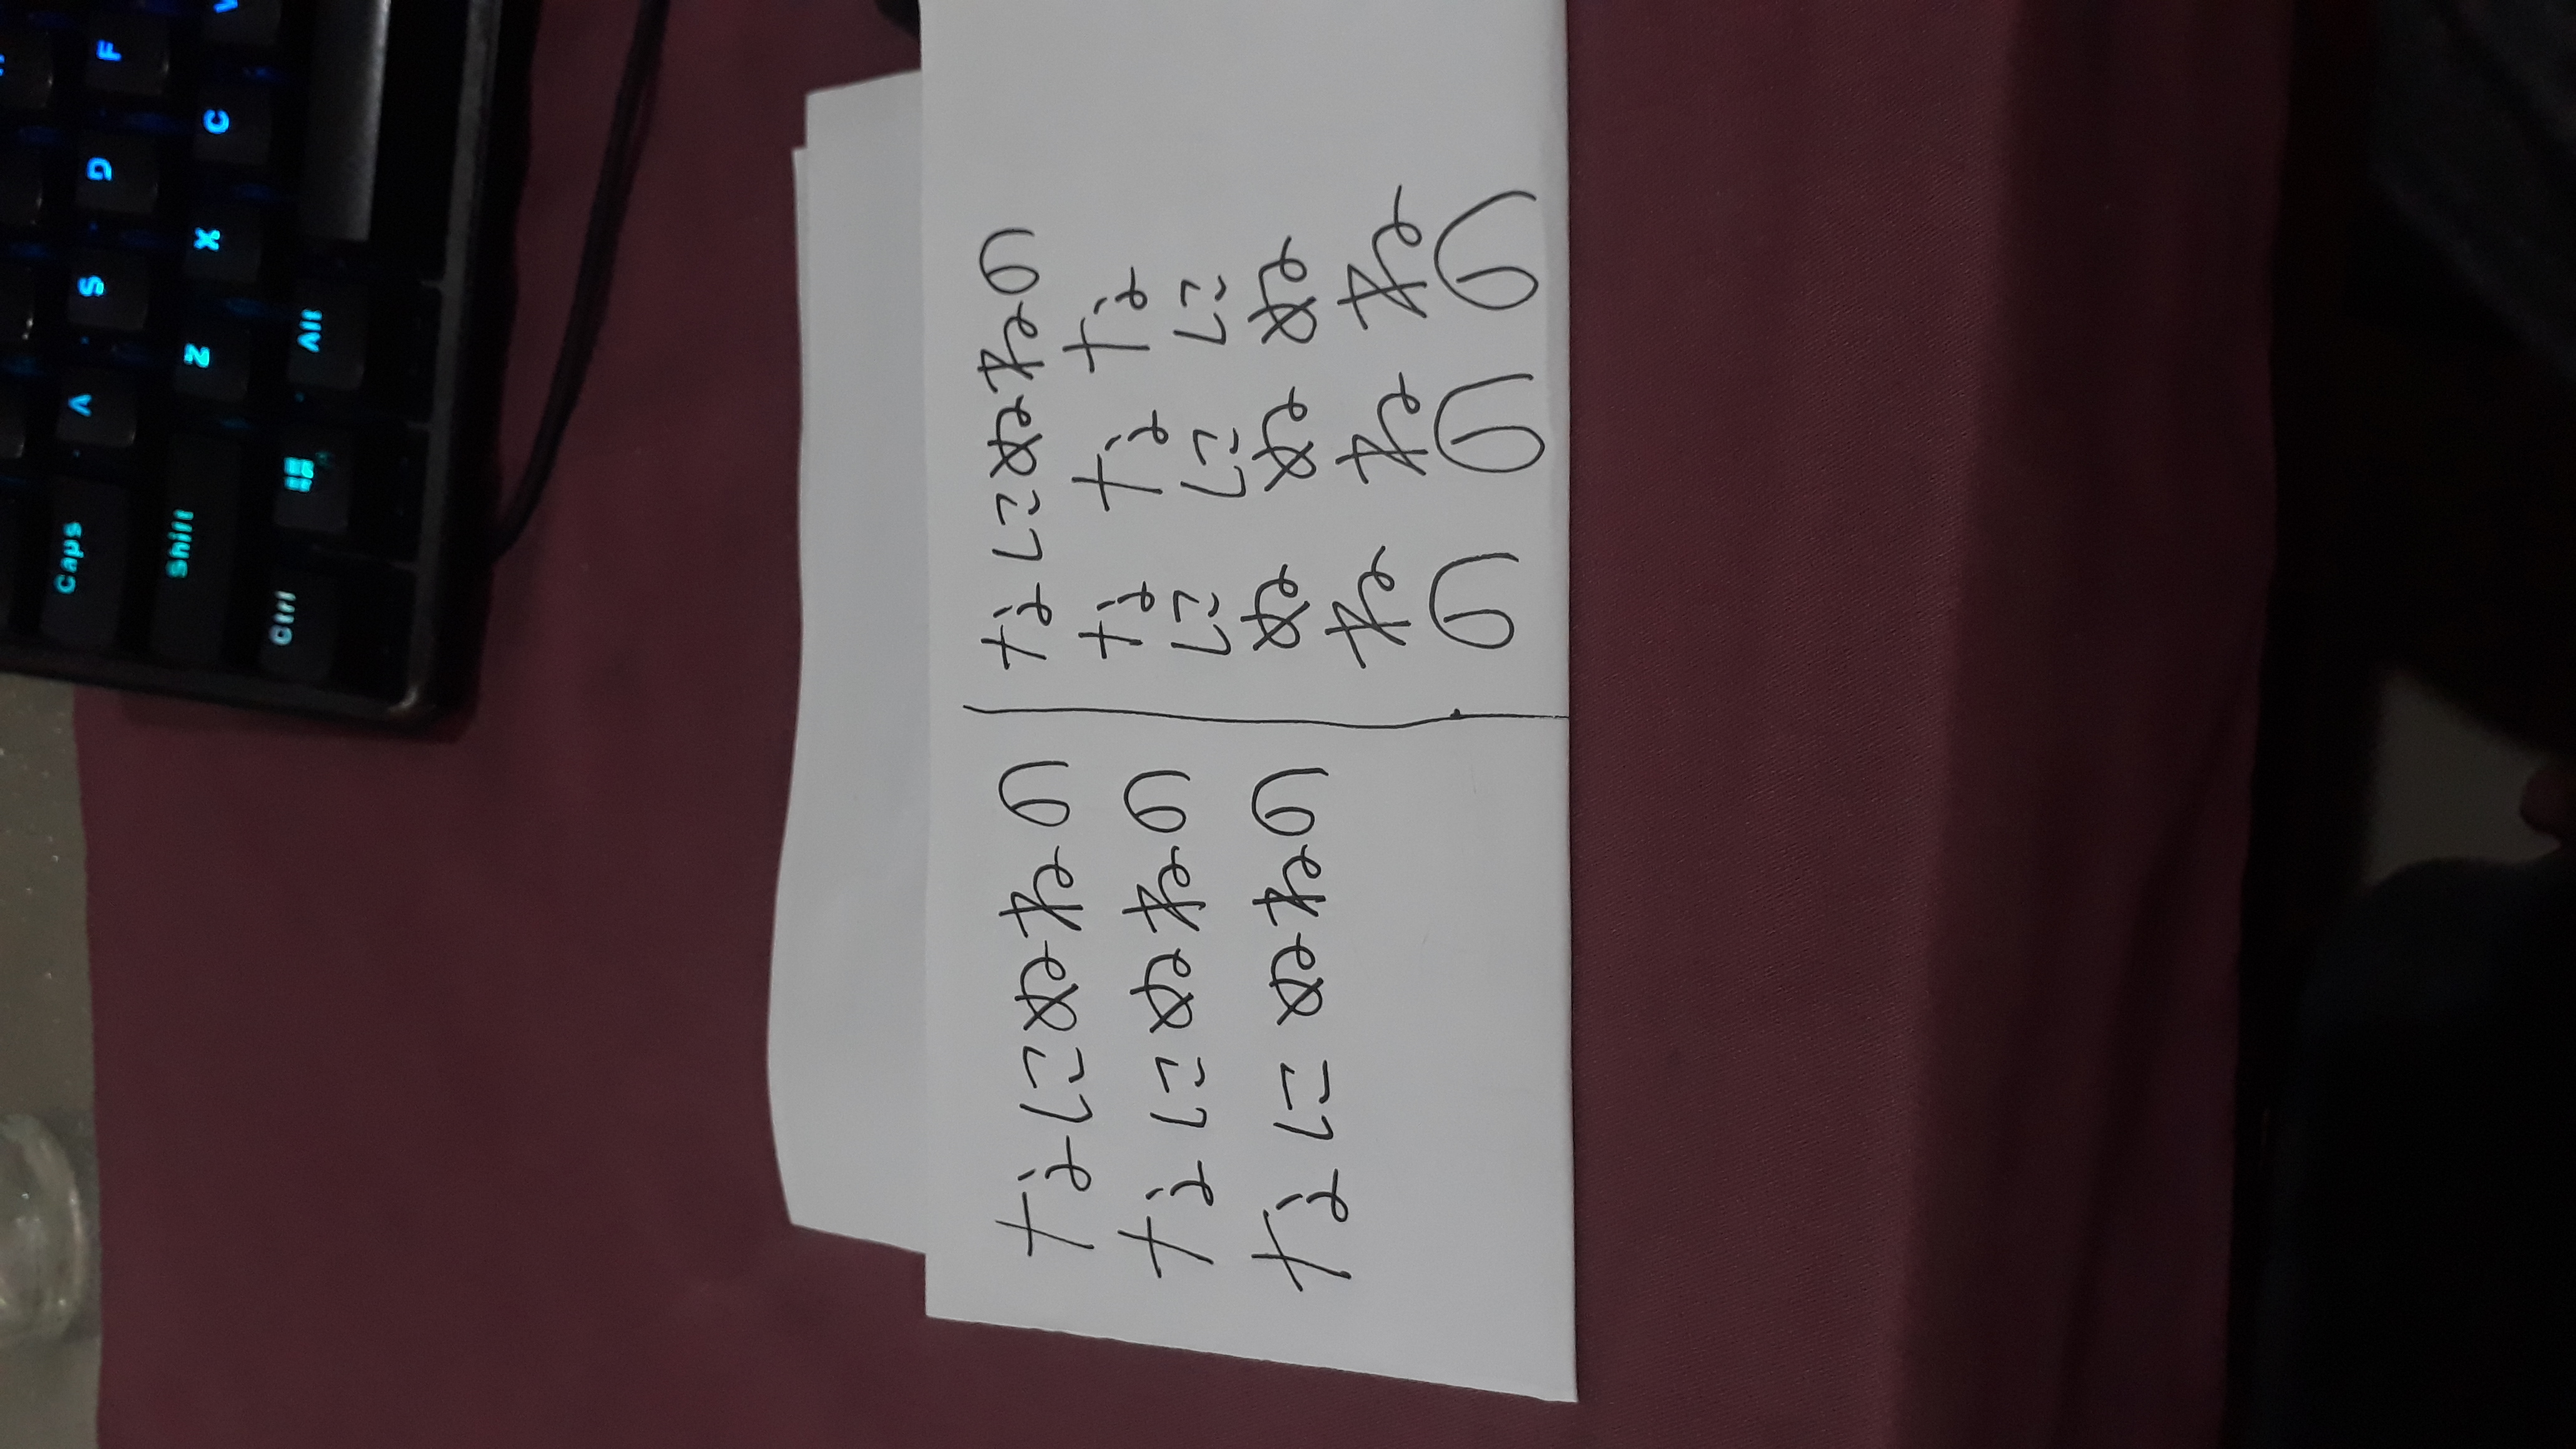 Caps A S D F
Shift Z X C
Ctrl Alt
なにぬねの
なにぬねの
なにぬねの
なにぬねの
な な な
に に に
ぬ ぬ ぬ
ね ね ね
の の の